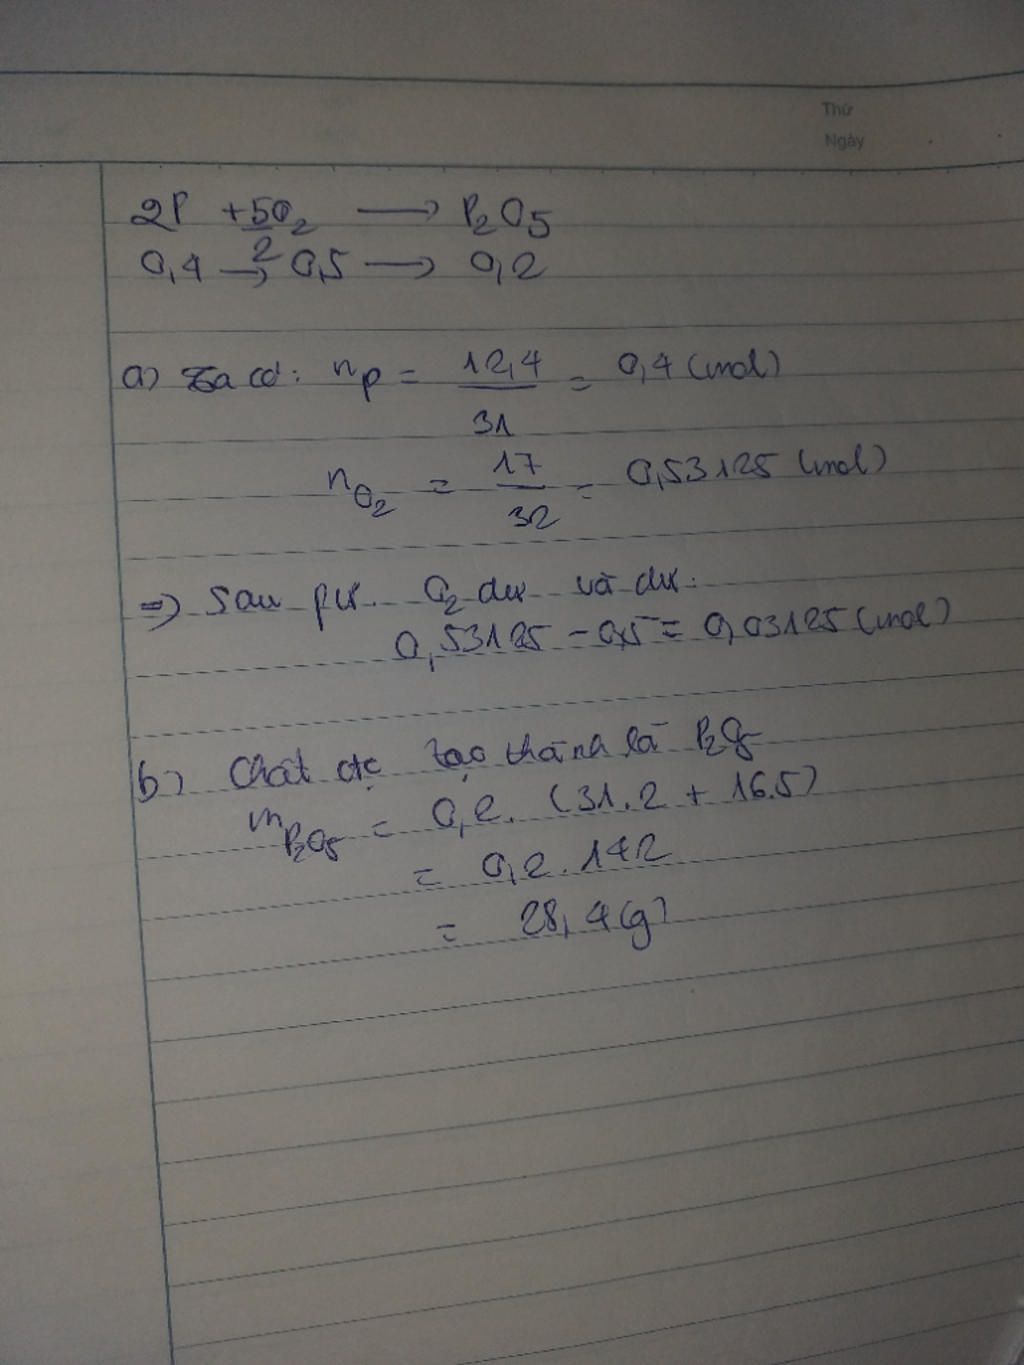 Thứ
Ngày
2P + 5/2 O₂ → P₂O₅
0,4 → 0,5 → 0,2
a) Ta có: nP = 12,4/31 = 0,4 (mol)
nO₂ = 17/32 = 0,53125 (mol)
=> Sau pư. O₂ dư và dư:
0,53125 - 0,5 = 0,03125 (mol)
b) Chất đc tạo thành là P₂O₅
mP₂O₅ = 0,2. (31.2 + 16.5)
= 0,2.142
= 28,4 (g)